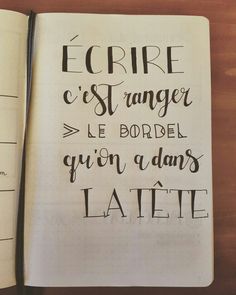 ÉCRIRE
c'est ranger
» LE BORDEL
qu'on a dans
LA TÊTE